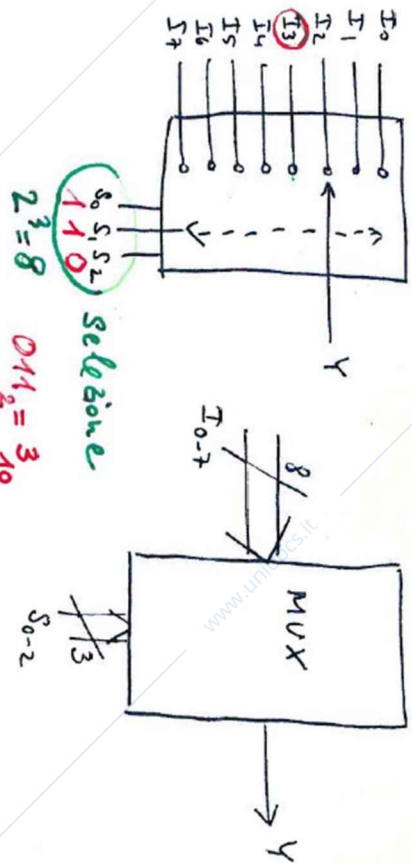 I0
I1
I2
I3
I4
I5
I6
I7
Y
S0 S1 S2
1 1 0
selezione
2³ = 8
011₂ = 3₁₀
I0-7
8
MUX
Y
S0-2
3
www.unidocs.it